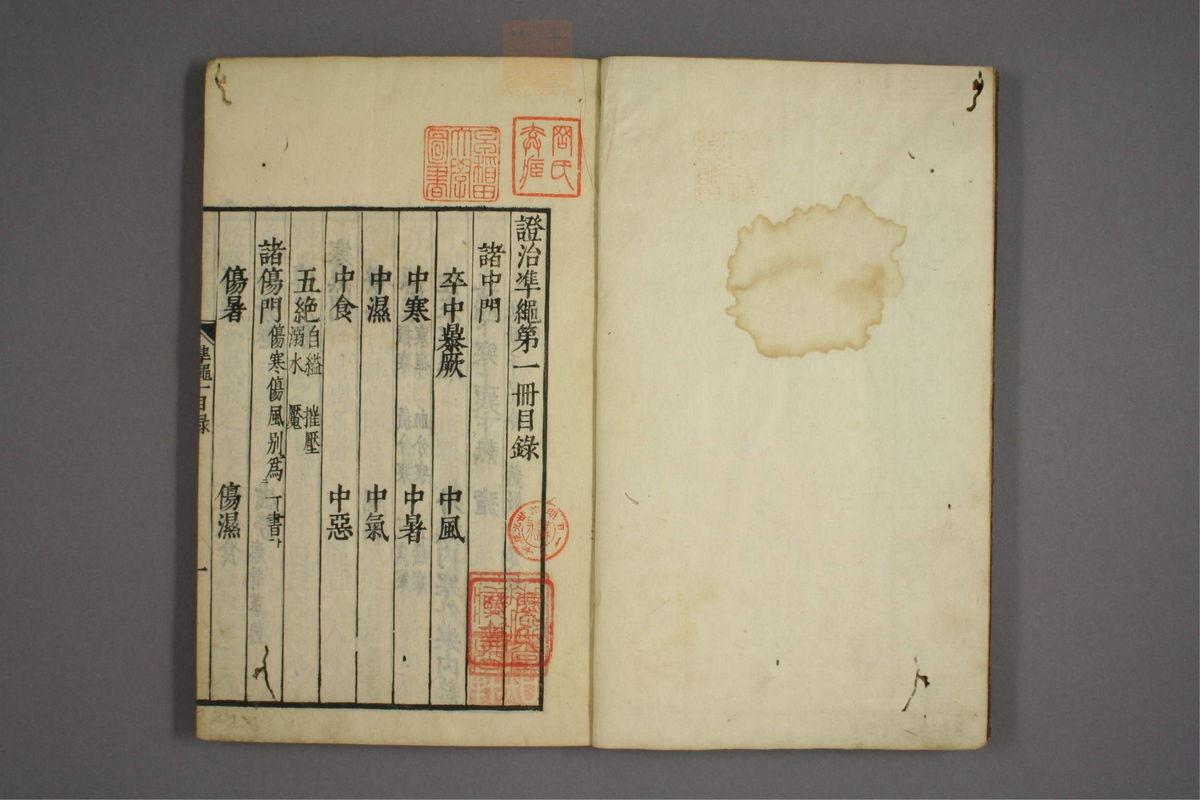 證治準繩第一冊目錄
諸中門
卒中暴厥 中風
中寒 中暑
中濕 中氣
中食 中惡
五絕 自縊 摧壓
溺水 魘
諸傷門 傷寒傷風別為一書
傷暑 傷濕
準繩一目錄 一
早稻田
大學
圖書